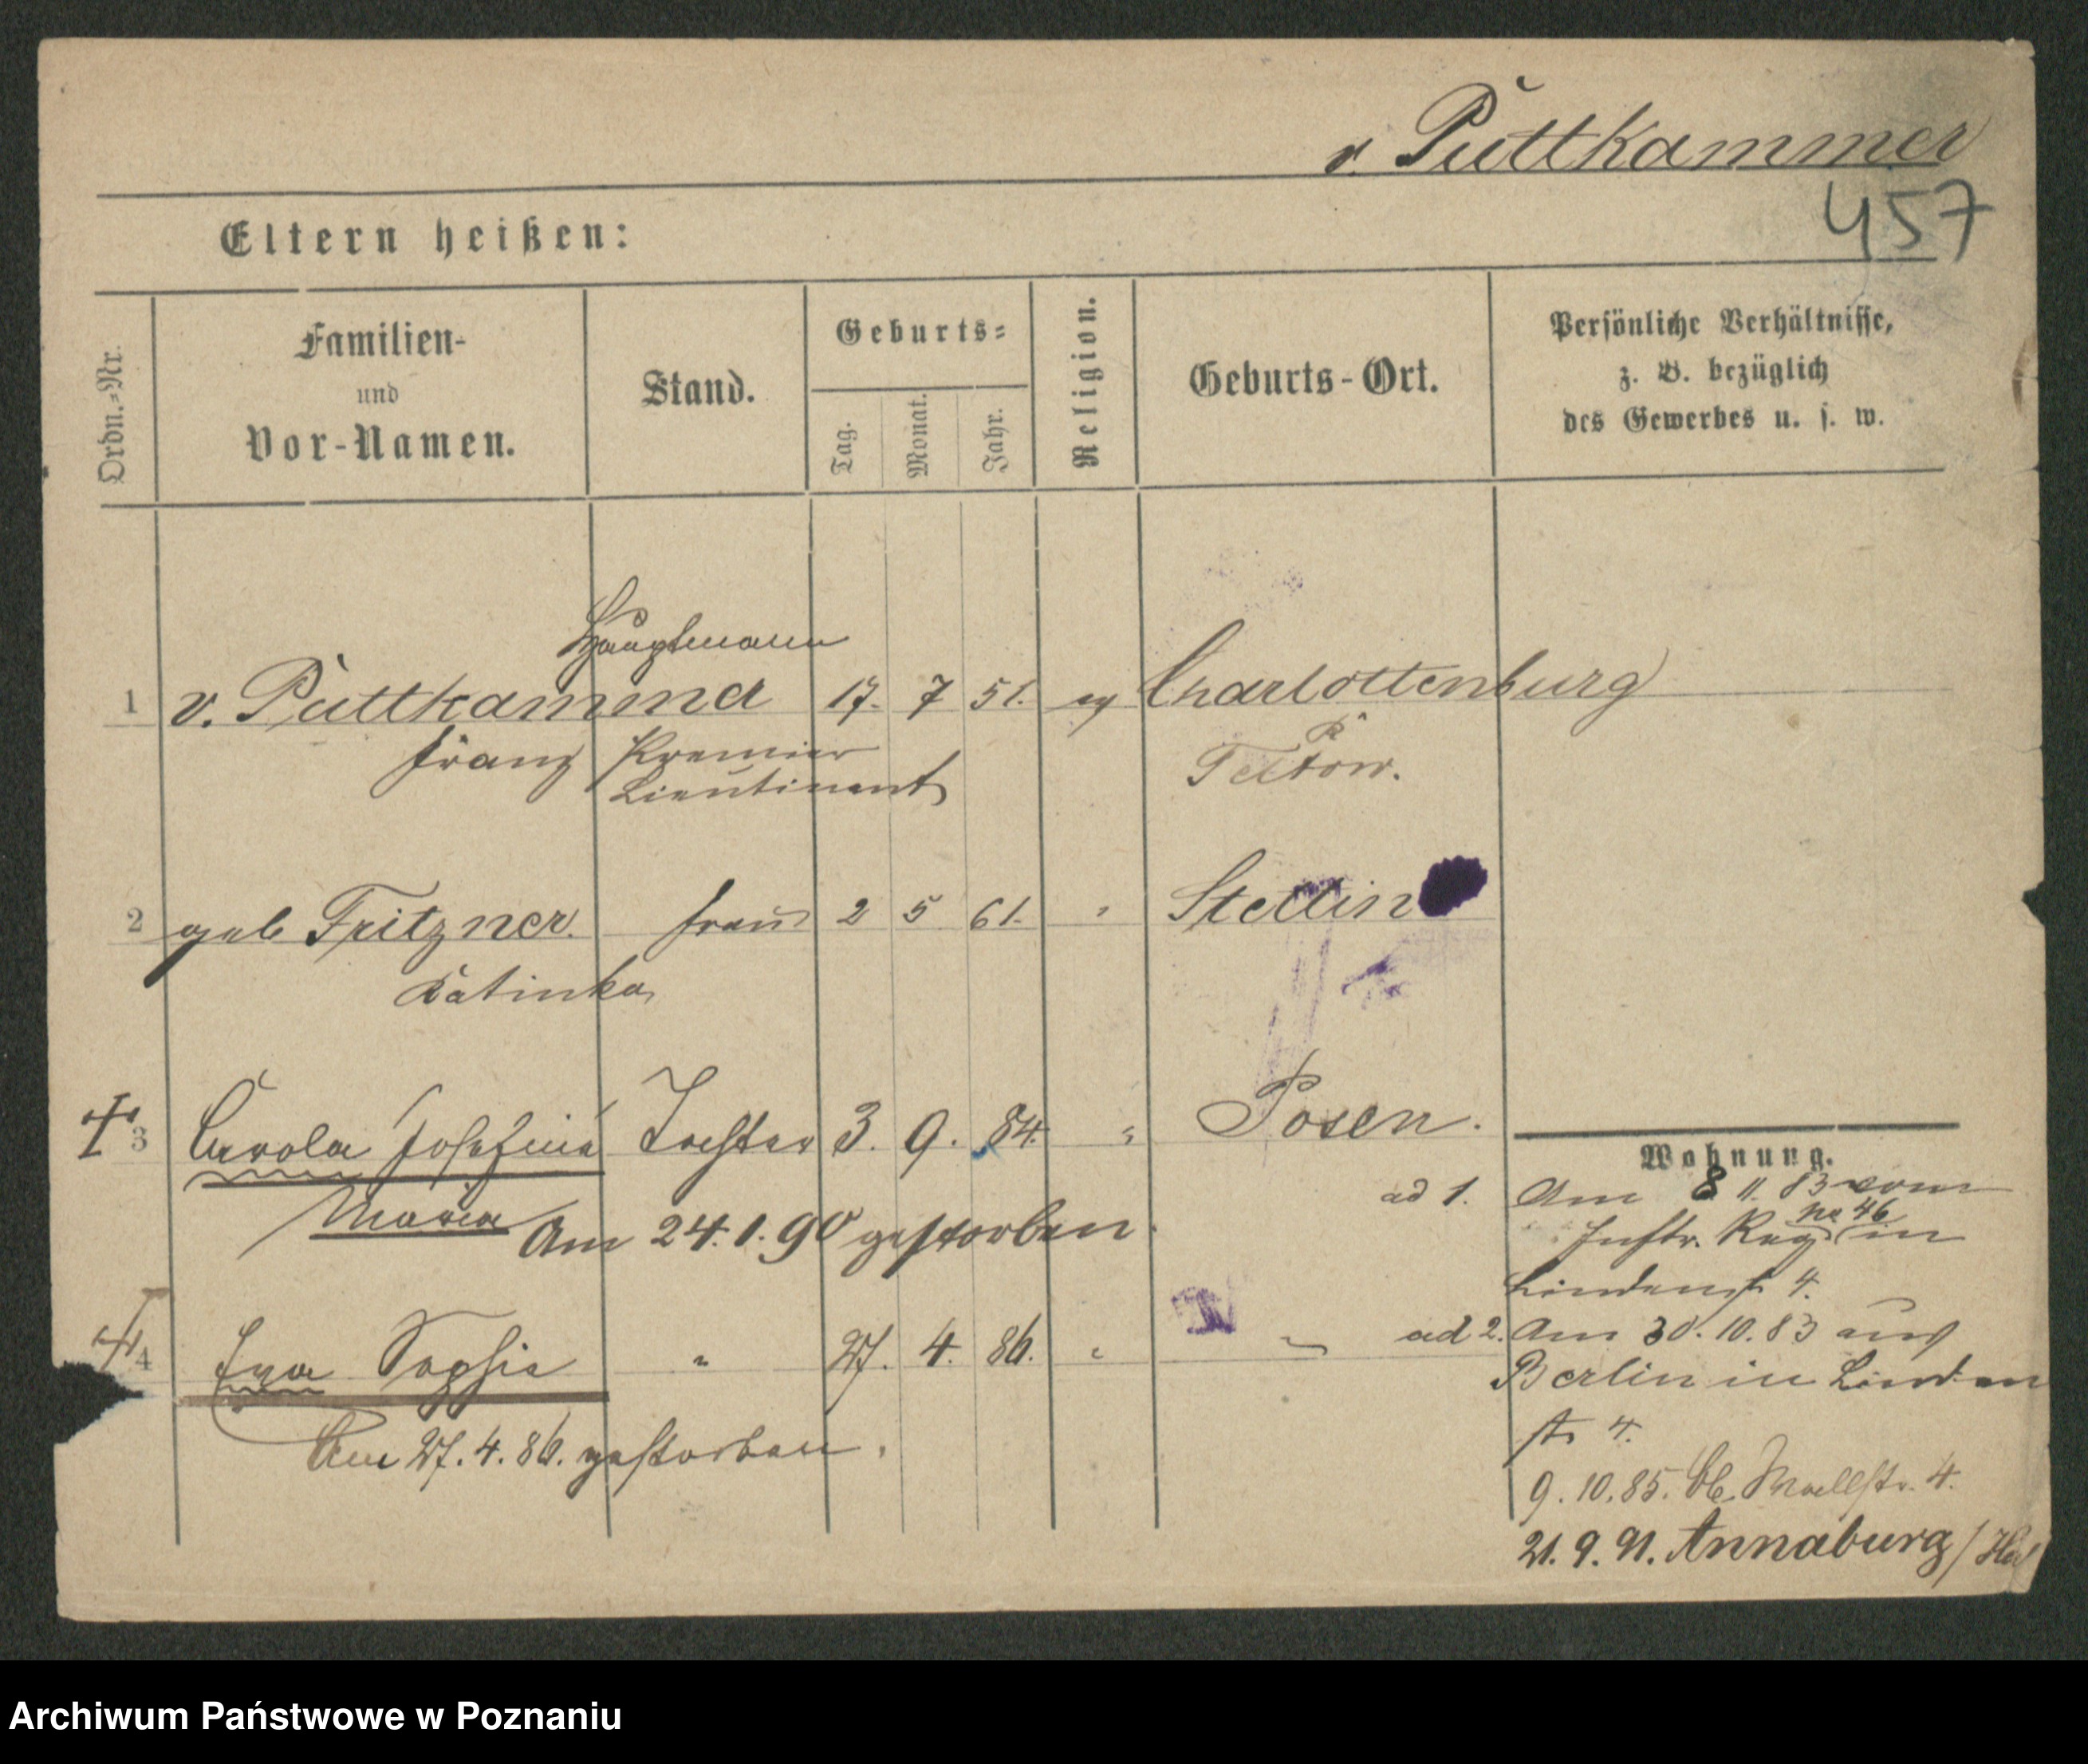 v. Puttkammer
457
Eltern heißen:
Ordn.-Nr.
Familien-
und
Vor-Namen.
Stand.
Geburts-
Tag.
Monat.
Jahr.
Religion.
Geburts-Ort.
Persönliche Verhältnisse,
z. B. bezüglich
des Gewerbes u. s. w.
Hauptmann
1 v. Puttkammer 17. 7 51. ev Charlottenburg
Franz Premier Teltow.
Lieutinant
2 geb Fritzner. Frau 2 5 61. " Stettin
Katinka
3 Carola Josefine Tochter 3. 9. 84. " Posen.
Maria
Am 24.1.90 gestorben.
Wohnung.
ad 1. Am 8 11. 83 vom
Inftr. Reg No 46 in
Lindenstr 4.
4 Eva Sophie " 27. 4. 86. " "
Am 27.4.86. gestorben.
ad 2. Am 30.10.83 aus
Berlin in Linden
str 4.
9.10.85. Ob. Muellstr. 4.
21.9.91. Annaburg /
Archiwum Państwowe w Poznaniu